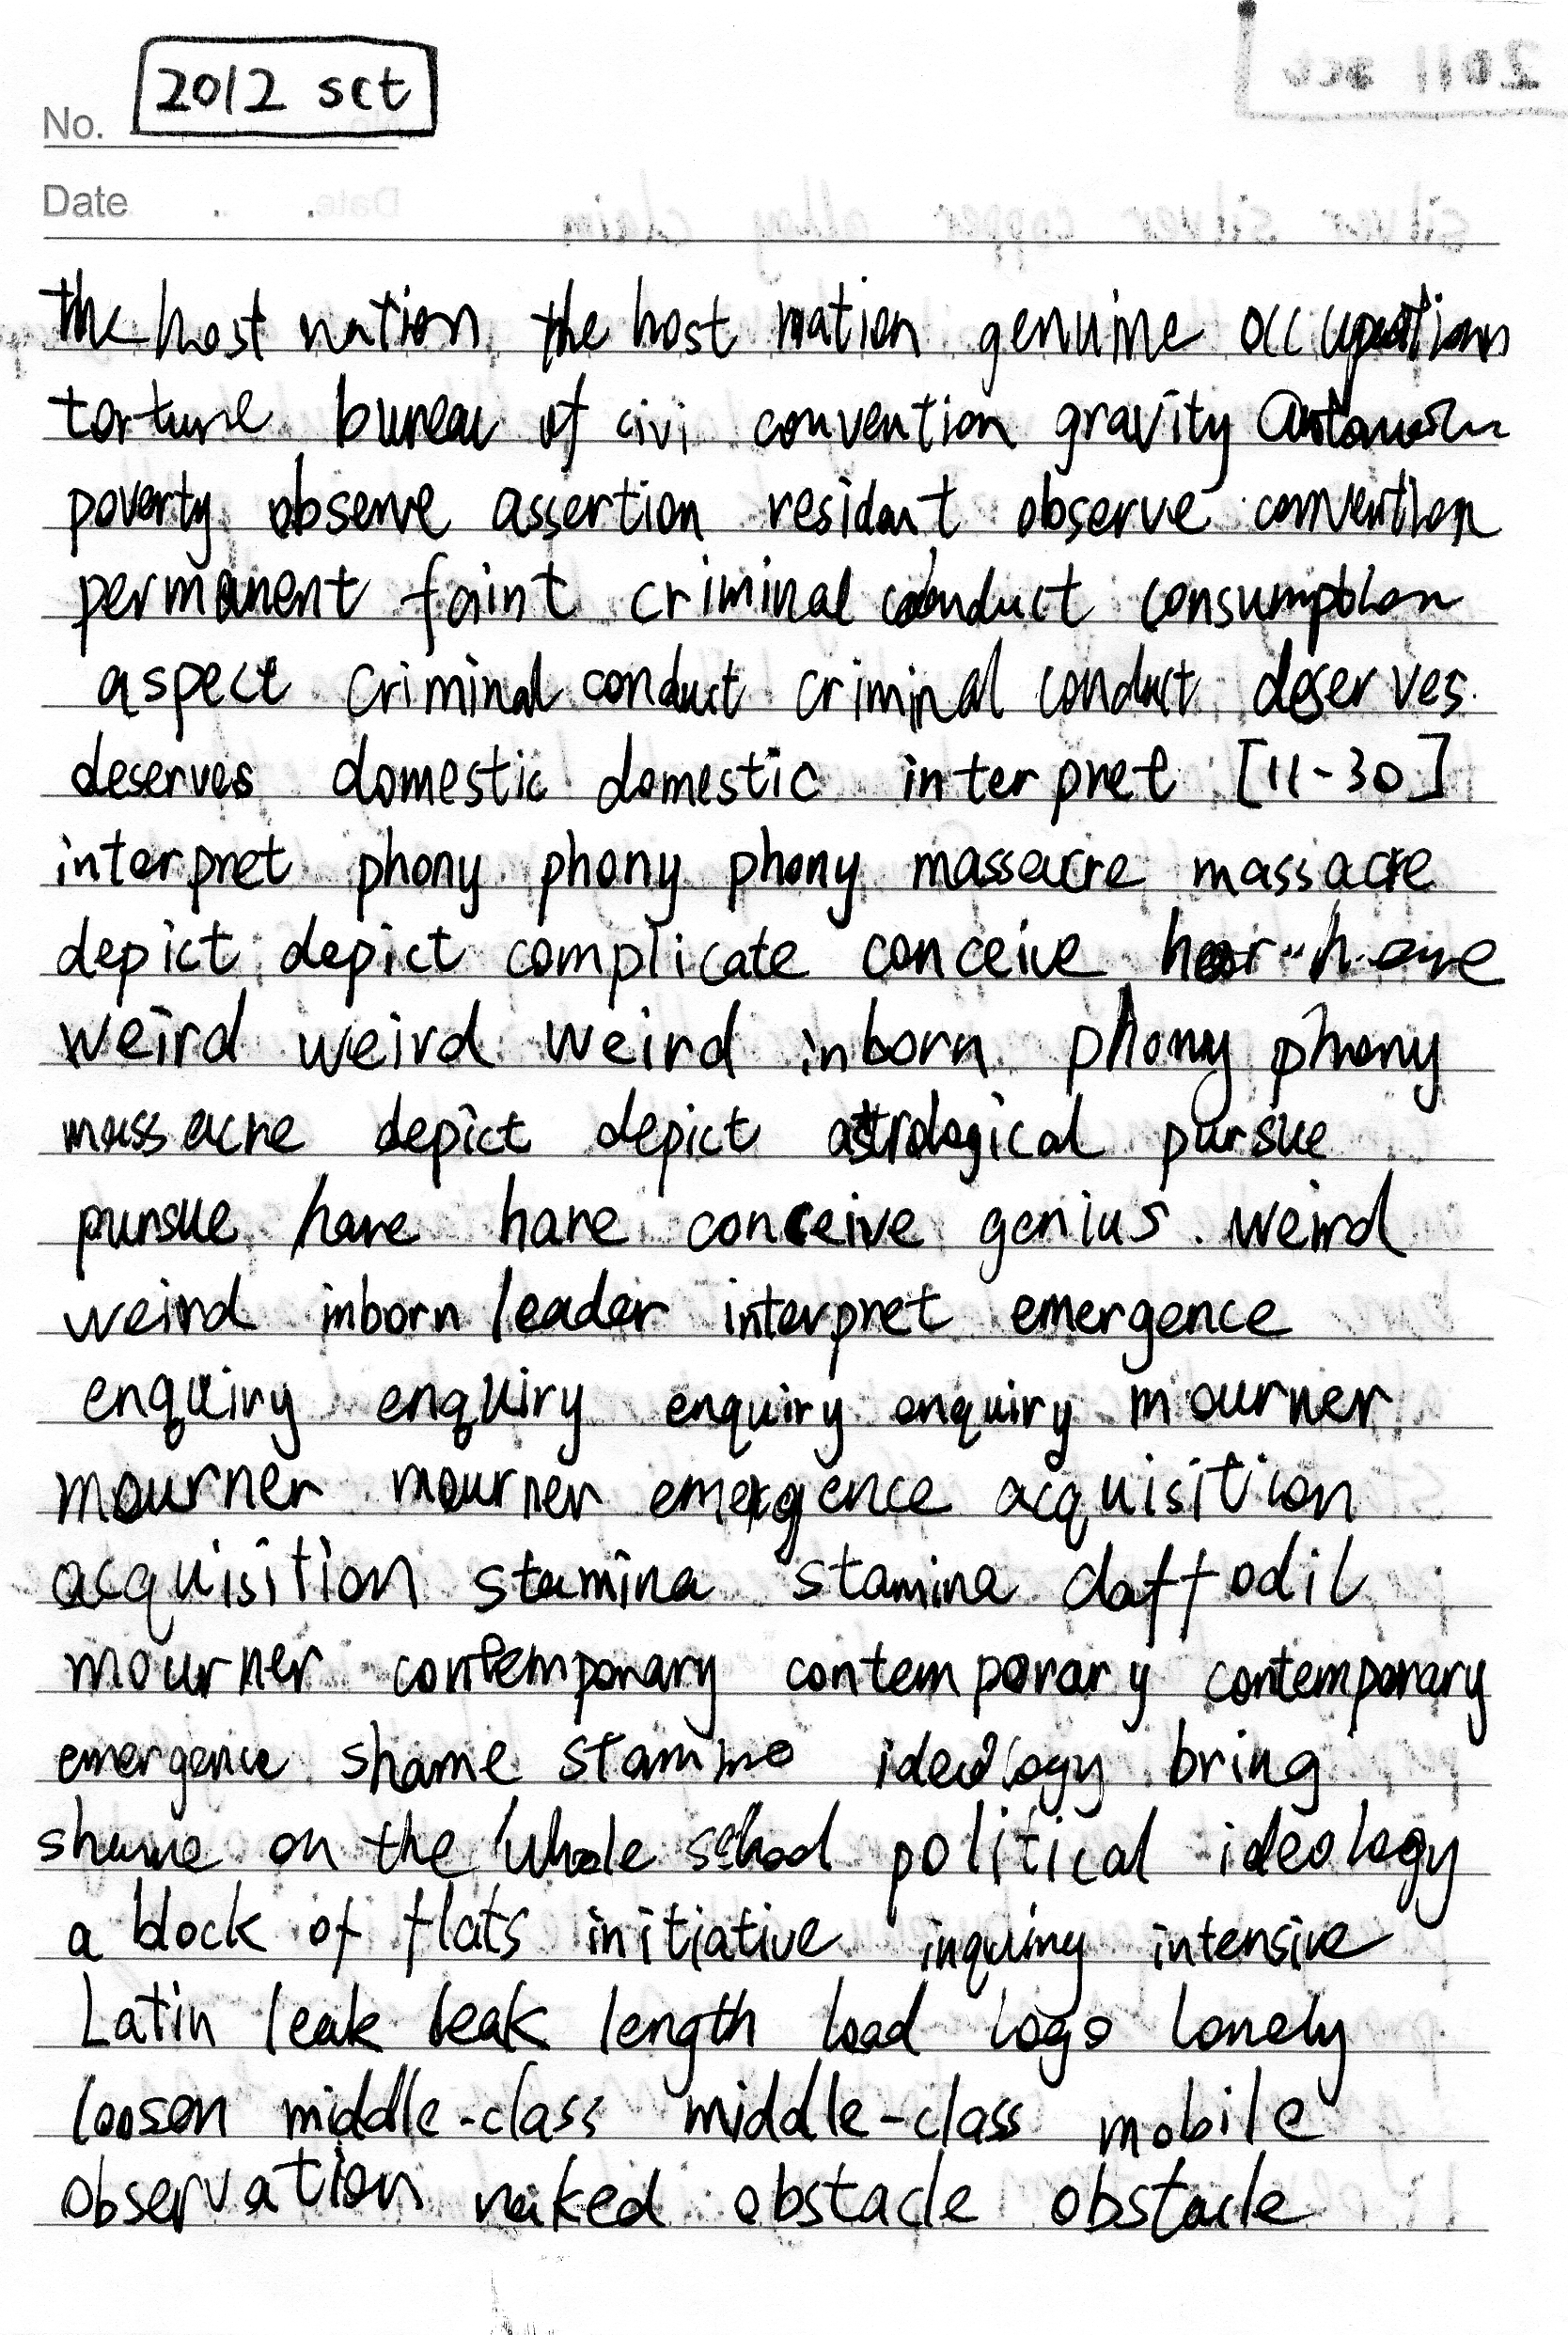 2012 sct
No.
Date . .
the host nation the host nation genuine occupation
torture bureau of civi convention gravity
poverty observe assertion resident observe convention
permanent faint criminal conduct consumption
aspect criminal conduct criminal conduct deserves
deserves domestic domestic interpret [11-30]
interpret phony phony phony massacre massacre
depict depict complicate conceive
weird weird weird inborn phony phony
massacre depict depict astrological pursue
pursue hare hare conceive genius weird
weird inborn leader interpret emergence
enquiry enquiry enquiry enquiry mourner
mourner mourner emergence acquisition
acquisition stamina stamina daffodil
mourner contemporary contemporary contemporary
emergence shame stamina ideology bring
shame on the whole school political ideology
a block of flats initiative inquiry intensive
Latin leak leak length load logo lonely
loosen middle-class middle-class mobile
observation naked obstacle obstacle